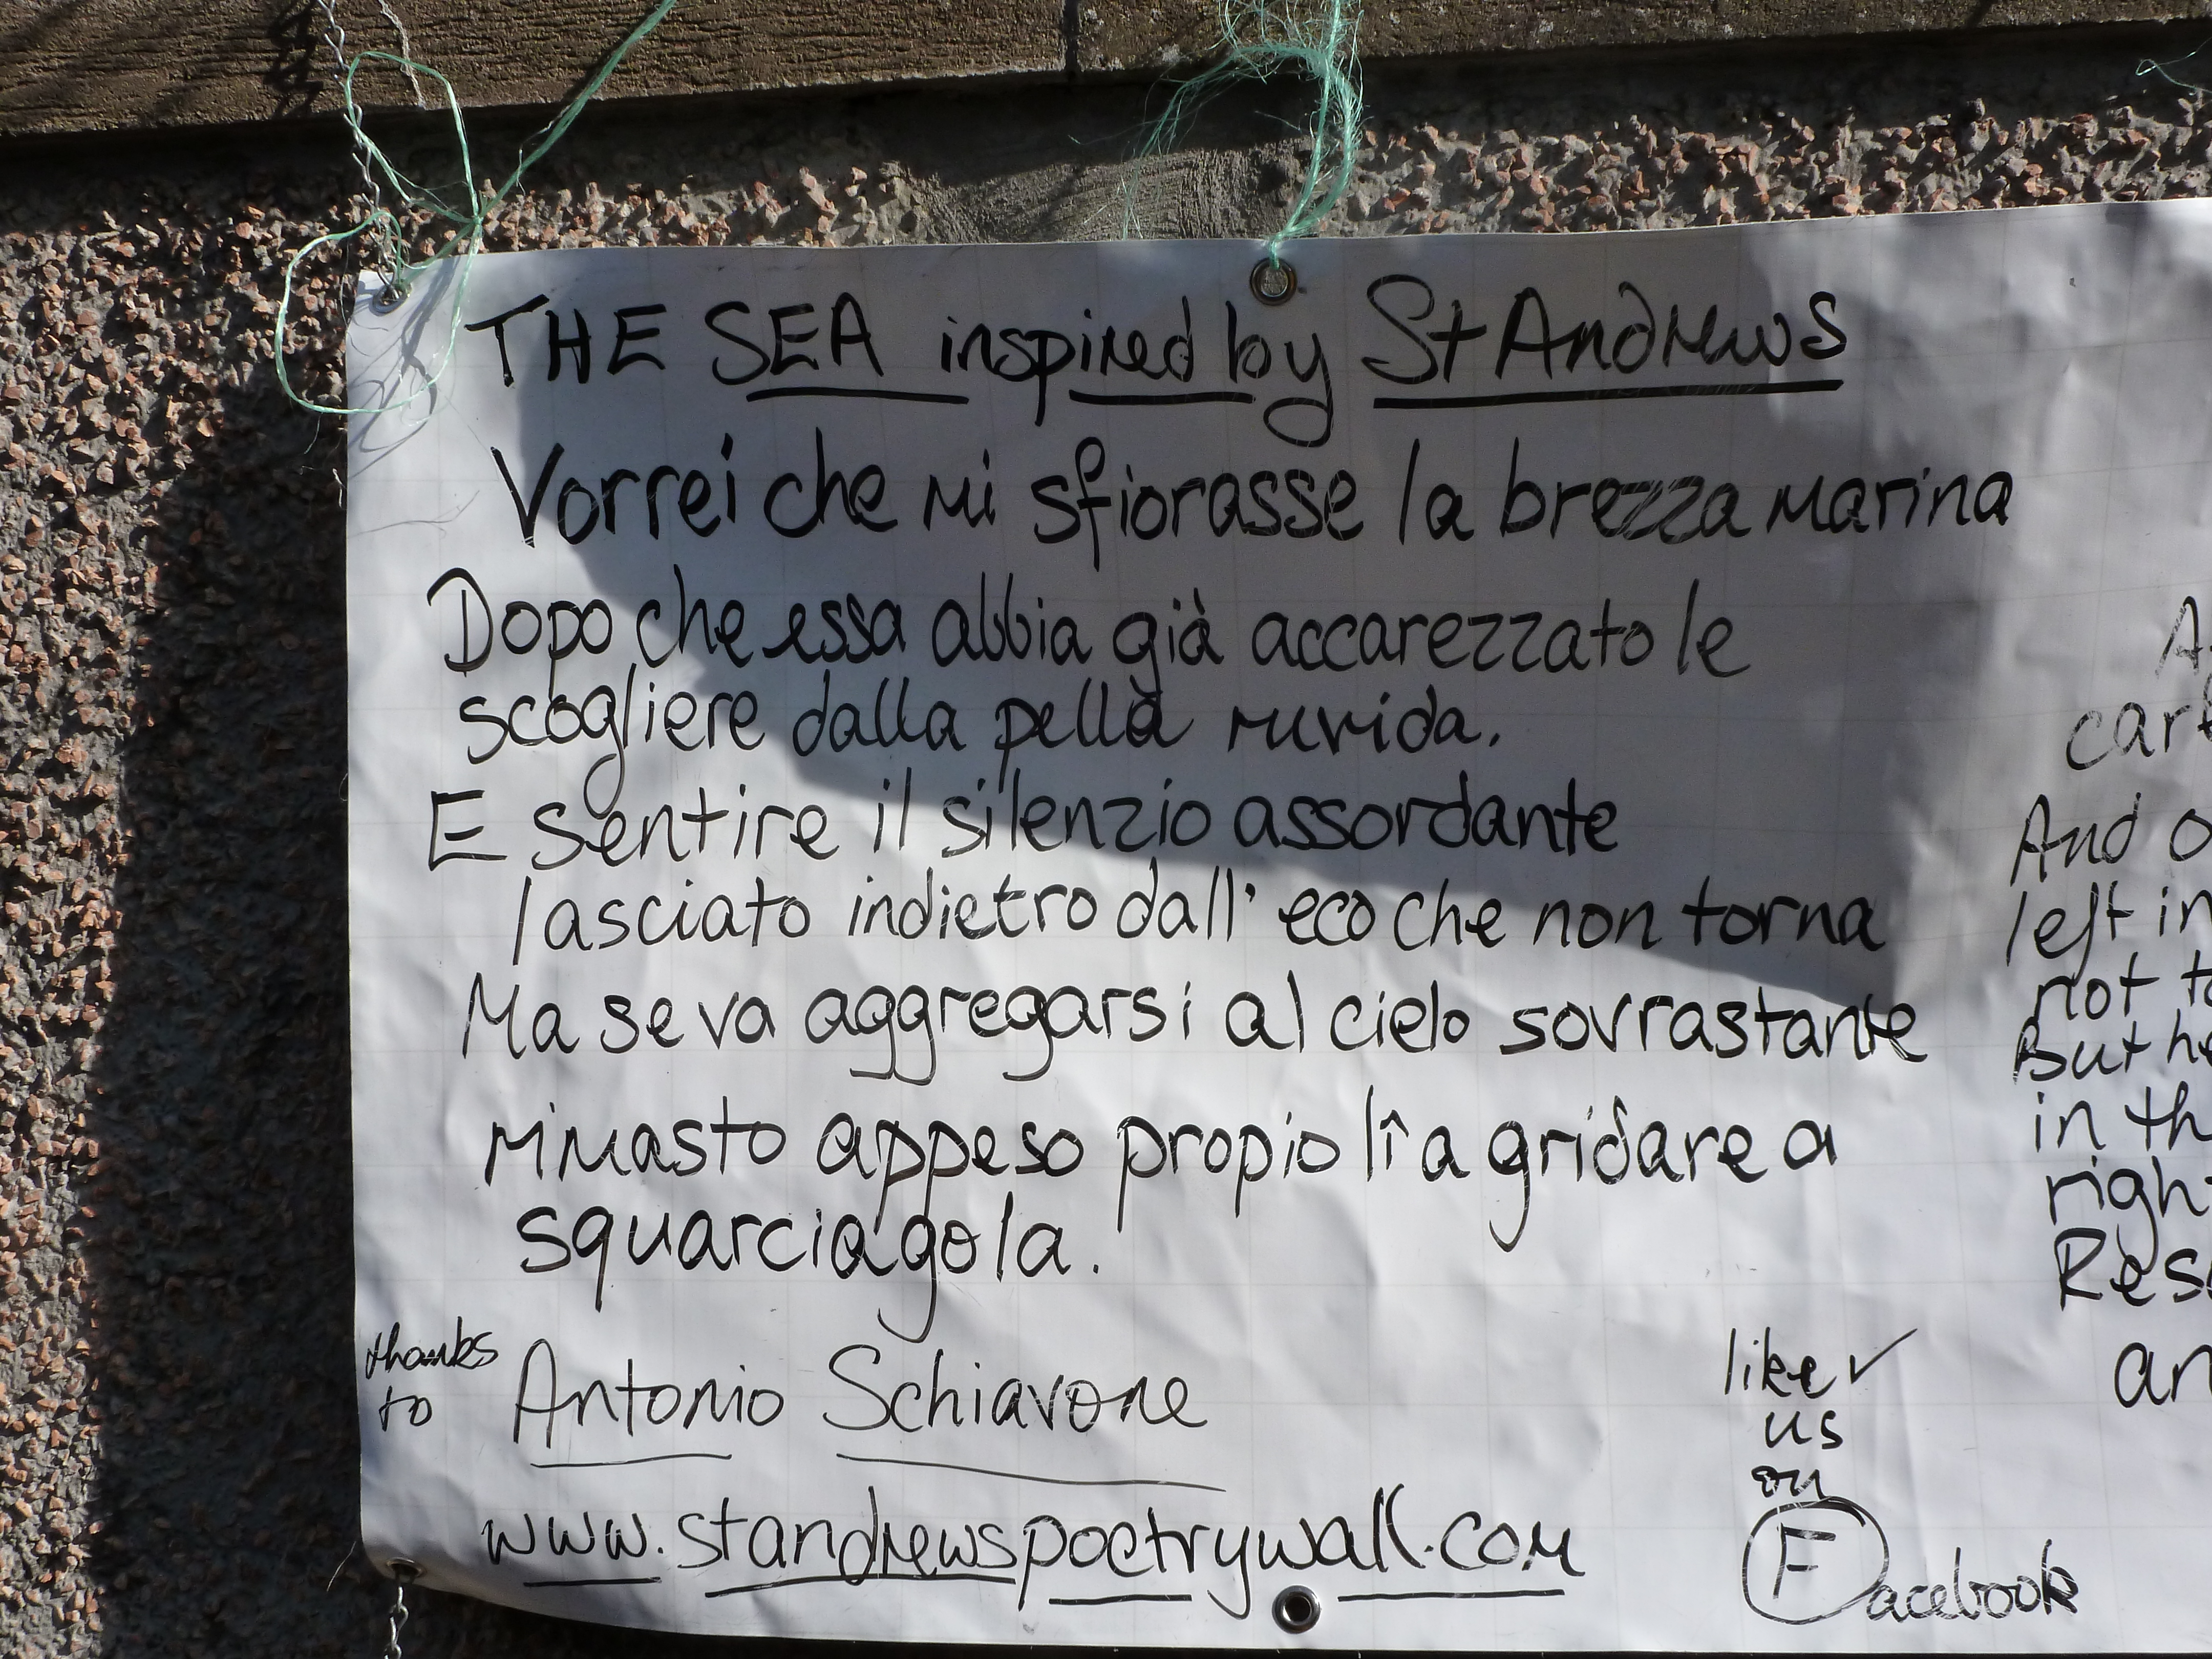 THE SEA inspired by St Andrews
Vorrei che mi sfiorasse la brezza marina
Dopo che essa abbia già accarezzato le
scogliere dalla pella ruvida.
E sentire il silenzio assordante
lasciato indietro dall' eco che non torna
Ma se va aggregarsi al cielo sovrastante
rimasto appeso propio lì a gridare a
squarciagola.
thanks
to
Antonio Schiavone
www.standrewspoetrywall.com
like ✓
us
on
Facebook
And
left in
not
But
in